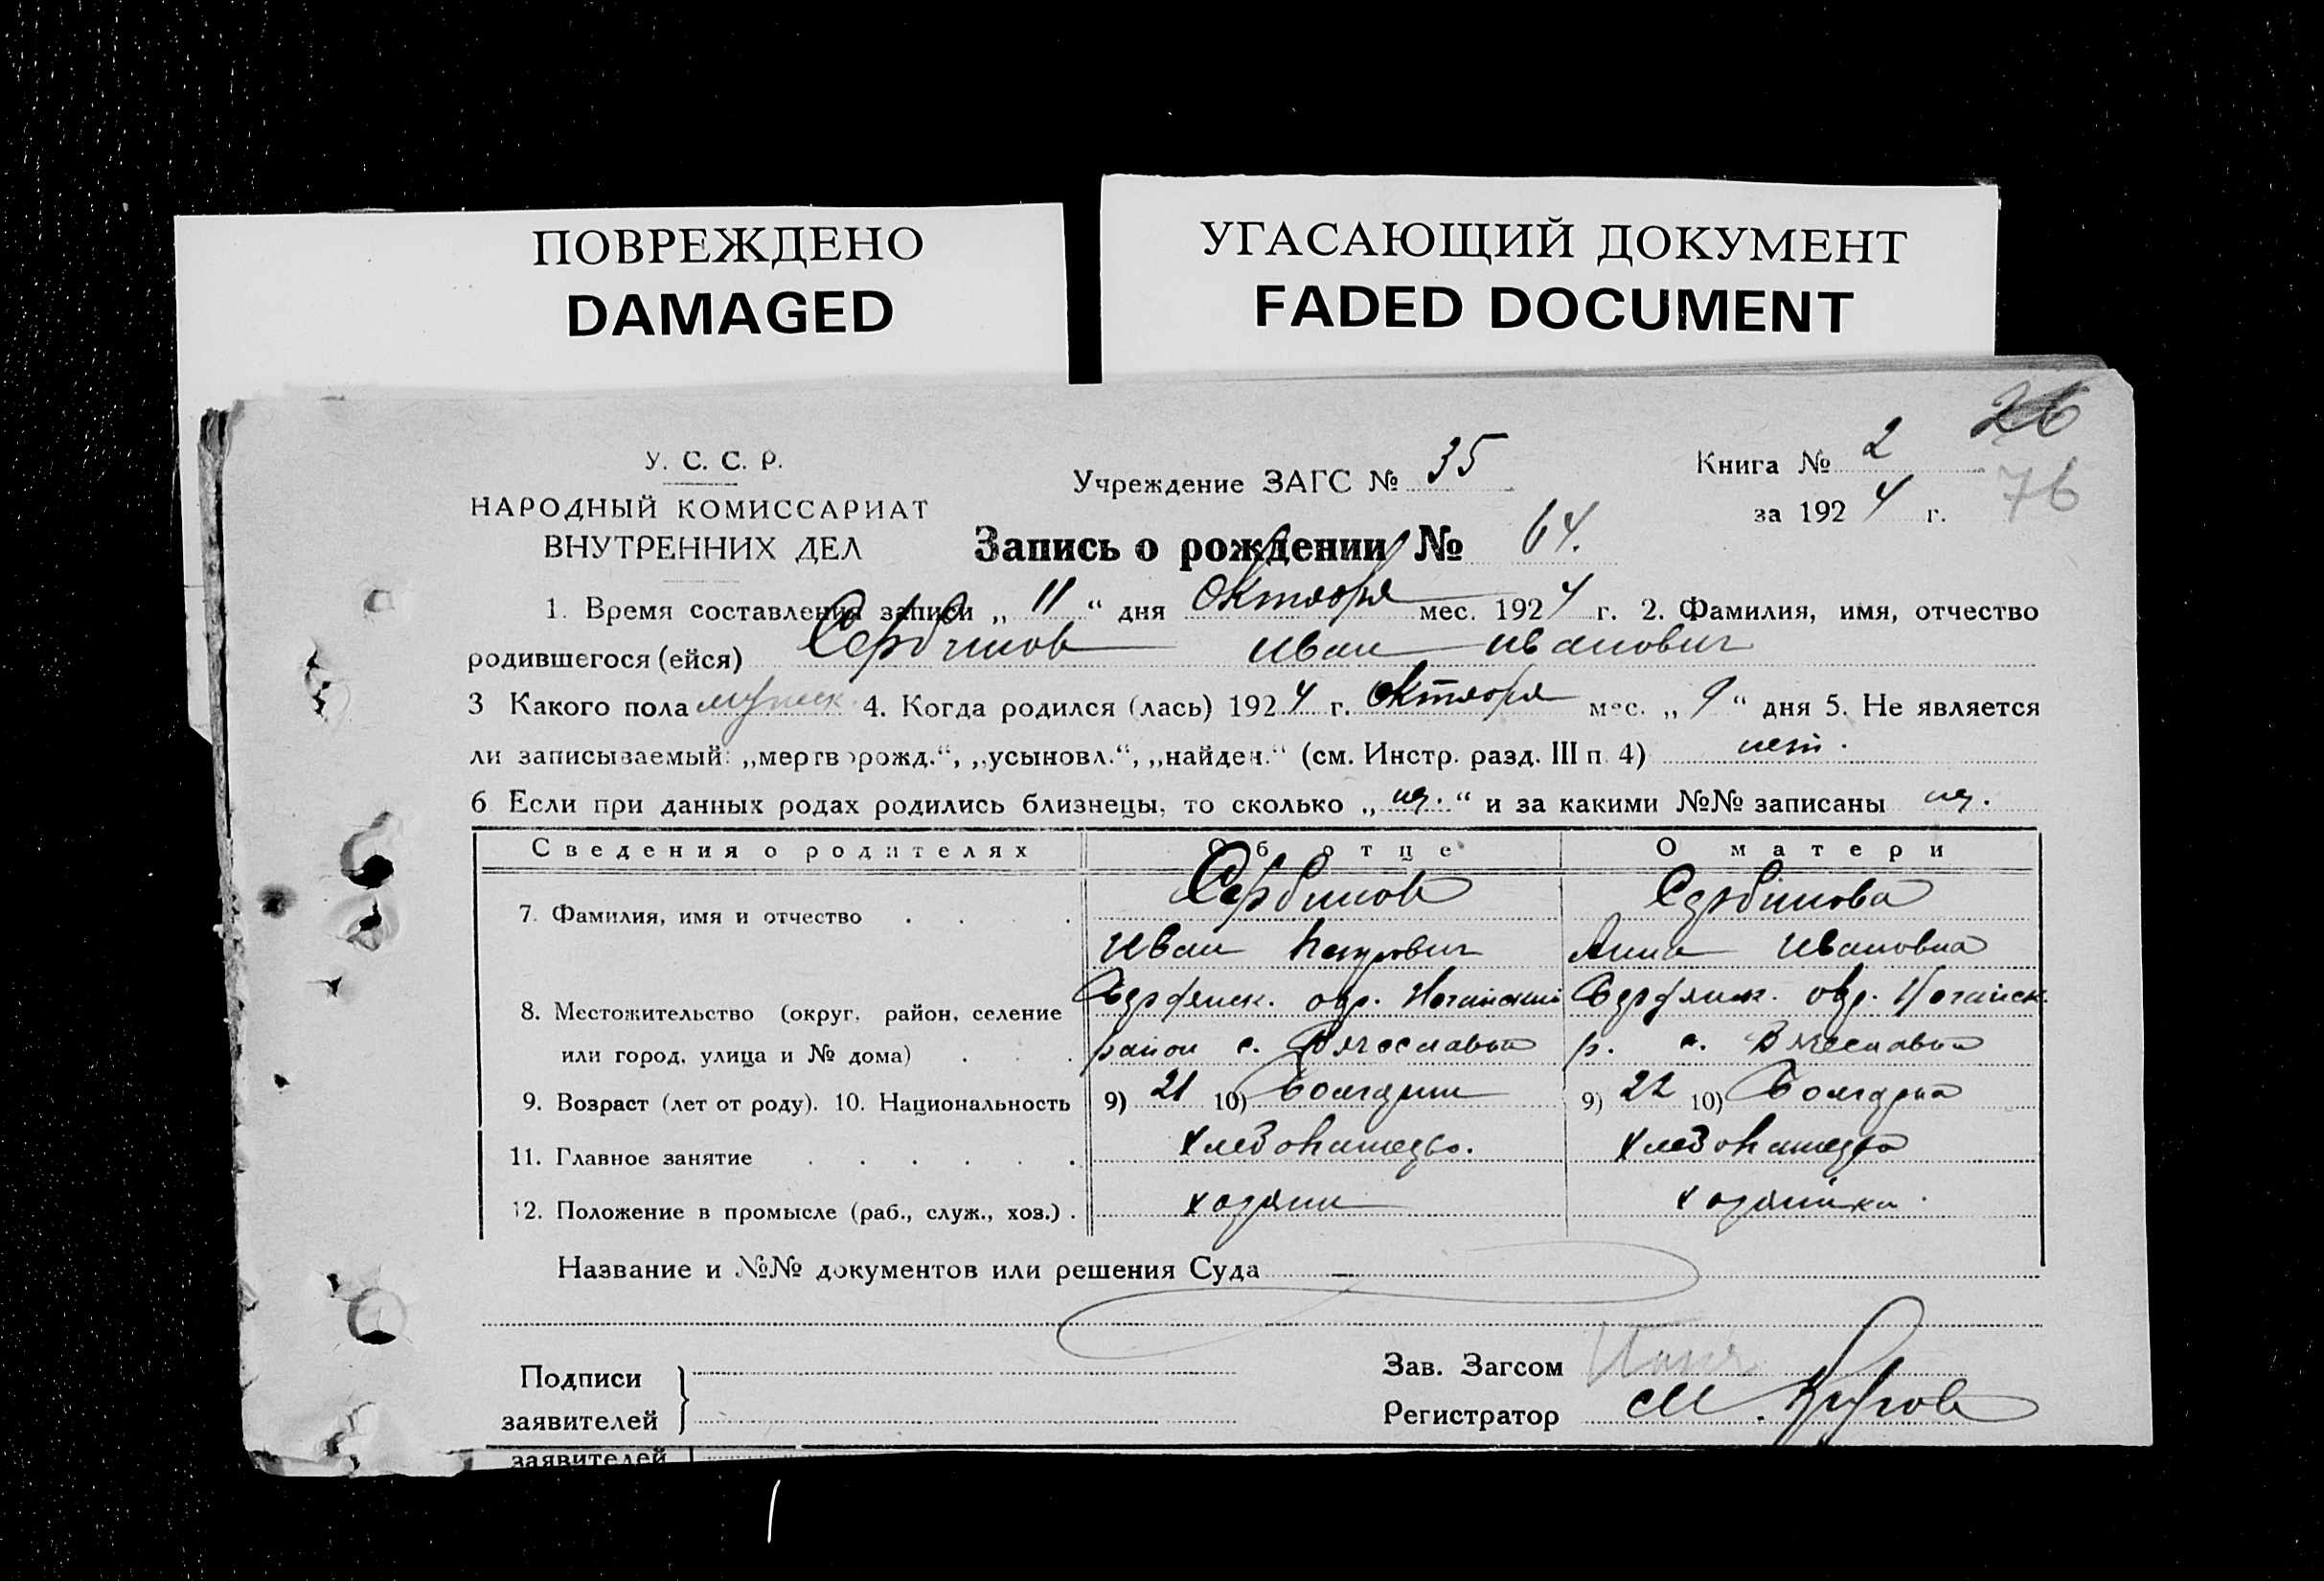 ПОВРЕЖДЕНО
DAMAGED
УГАСАЮЩИЙ ДОКУМЕНТ
FADED DOCUMENT
26
76
У. С. С. Р.
НАРОДНЫЙ КОМИССАРИАТ
ВНУТРЕННИХ ДЕЛ
Учреждение ЗАГС № 35
Книга № 2
за 1924 г.
Запись о рождении № 64.
1. Время составления записи „ 11 “ дня Октября мес. 1924 г. 2. Фамилия, имя, отчество
родившегося (ейся) Сербинов Иван Иванович
3 Какого пола мужск. 4. Когда родился (лась) 1924 г. Октября мес. „ 9 “ дня 5. Не является
ли записываемый: „мертворожд.“, „усыновл.“, „найден.“ (см. Инстр. разд. III п. 4) нет.
6 Если при данных родах родились близнецы, то сколько „ “ и за какими №№ записаны
Сведения о родителях Об отце О матери
7. Фамилия, имя и отчество . . . Сербинов Сербинова
Иван Петрович Анна Ивановна
8. Местожительство (округ, район, селение Бердянск. окр. Ногайский Бердянск. окр. Ногайск.
или город, улица и № дома) . . . район с. Вячеславка р. с. Вячеславка
9. Возраст (лет от роду). 10. Национальность 9) 21 10) Болгарин 9) 22 10) Болгарка
11. Главное занятие . . . . . . Хлебопашество. Хлебопашество
12. Положение в промысле (раб., служ., хоз.) . хозяин хозяйка.
Название и №№ документов или решения Суда
Подписи
заявителей
Зав. Загсом
Регистратор М.
заявителей